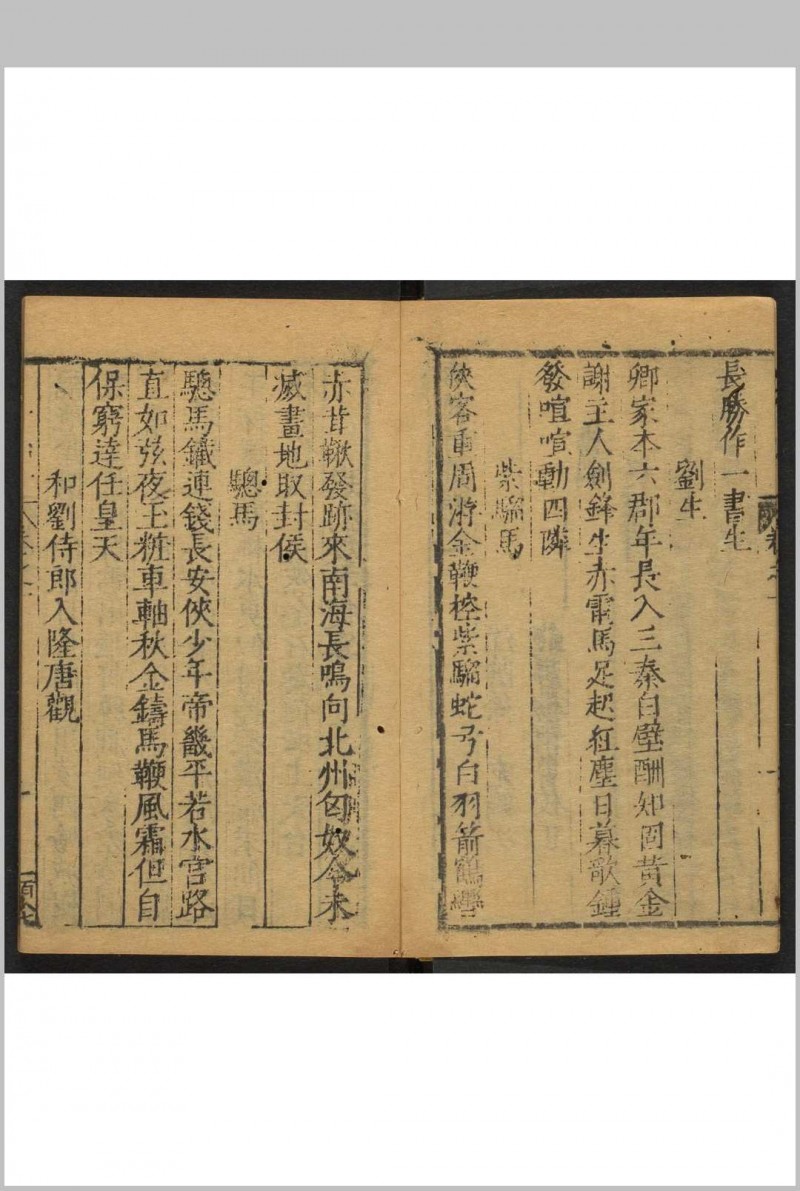 長勝作一書生
劉生
卿家本六郡年長入三秦白璧酬知國黃金
謝主人劍鋒生赤電馬足起紅塵日暮歌鍾
發喧喧動四隣
紫騮馬
俠客重周游金鞭控紫騮蛇弓白羽箭鶴轡
赤茸鞦發跡來南海長鳴向北州匈奴今未
滅畫地取封侯
驄馬
驄馬鐵連錢長安俠少年帝畿平若水官路
直如弦夜玉粧車軸秋金鑄馬鞭風霜但自
保窮達任皇天
和劉侍郎入隆唐觀